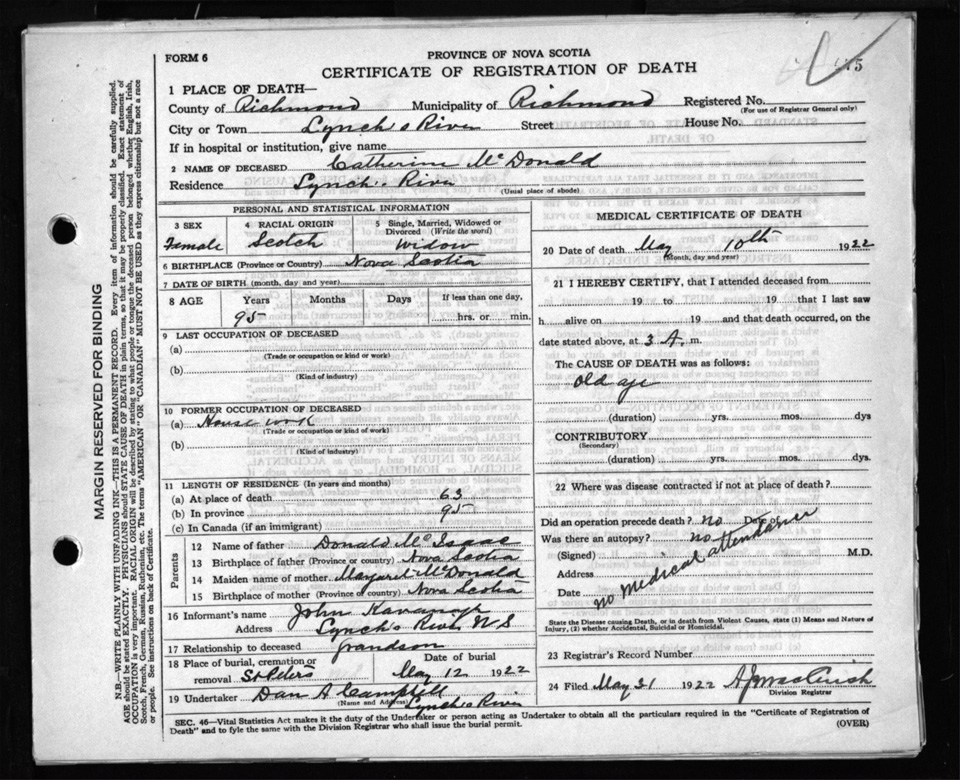 FORM 6
PROVINCE OF NOVA SCOTIA
CERTIFICATE OF REGISTRATION OF DEATH
1 PLACE OF DEATH—
County of Richmond Municipality of Richmond Registered No.
(For use of Registrar General only)
City or Town Lynch's River Street House No.
If in hospital or institution, give name
2 NAME OF DECEASED Catherine McDonald
Residence Lynch's River
(Usual place of abode)
PERSONAL AND STATISTICAL INFORMATION
3 SEX 4 RACIAL ORIGIN 5 Single, Married, Widowed or Divorced (Write the word)
Female Scotch Widow
6 BIRTHPLACE (Province or Country) Nova Scotia
7 DATE OF BIRTH (month, day and year)
8 AGE Years Months Days If less than one day,
95 hrs. or min.
9 LAST OCCUPATION OF DECEASED
(a)
(Trade or occupation or kind of work)
(b)
(Kind of industry)
10 FORMER OCCUPATION OF DECEASED
(a) House work
(Trade or occupation or kind of work)
(b)
(Kind of industry)
11 LENGTH OF RESIDENCE (In years and months)
(a) At place of death 63
(b) In province 95
(c) In Canada (if an immigrant)
Parents
12 Name of father Donald McIsaac
13 Birthplace of father (Province or country) Nova Scotia
14 Maiden name of mother Margaret McDonald
15 Birthplace of mother (Province or country) Nova Scotia
16 Informant's name John Kavanagh
Address Lynch's River N S
17 Relationship to deceased Grandson
18 Place of burial, cremation or removal St Peters Date of burial May 12 1922
19 Undertaker Dan A Campbell
(Name and Address) Lynch's River
MEDICAL CERTIFICATE OF DEATH
20 Date of death May 10th 1922
(Month, day and year)
21 I HEREBY CERTIFY, that I attended deceased from
19 to 19 that I last saw
h alive on 19 and that death occurred, on the
date stated above, at 3 A. m.
The CAUSE OF DEATH was as follows:
old age
(duration) yrs. mos. dys
CONTRIBUTORY
(Secondary)
(duration) yrs. mos. dys.
22 Where was disease contracted if not at place of death?
Did an operation precede death? no Date of
Was there an autopsy? no
(Signed) M.D.
Address
Date
no medical attendence
State the Disease causing Death, or in death from Violent Causes, state (1) Means and Nature of
Injury, (2) whether Accidental, Suicidal or Homicidal.
23 Registrar's Record Number
24 Filed May 31 1922
Division Registrar
SEC. 46—Vital Statistics Act makes it the duty of the Undertaker or person acting as Undertaker to obtain all the particulars required in the "Certificate of Registration of
Death" and to fyle the same with the Division Registrar who shall issue the burial permit.
(OVER)
MARGIN RESERVED FOR BINDING
N.B.—WRITE PLAINLY WITH UNFADING INK—THIS IS A PERMANENT RECORD. Every item of information should be carefully supplied.
AGE should be stated EXACTLY. PHYSICIANS should STATE CAUSE OF DEATH in plain terms, so that it may be properly classified. Exact statement of
OCCUPATION is very important. RACIAL ORIGIN will be described by stating to what people or tongue the deceased person belonged whether English, Irish,
Scotch, French, German, Russian, Ruthenian, etc. The terms "AMERICAN" or "CANADIAN" MUST NOT BE USED as they express citizenship but not a race
or people. See instructions on back of Certificate.